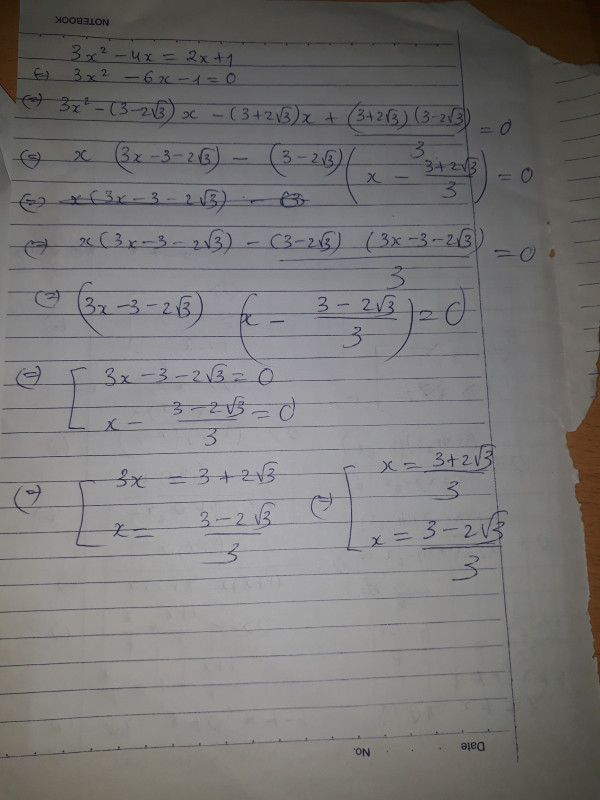 NOTEBOOK
3x² - 4x = 2x + 1
(=) 3x² - 6x - 1 = 0
(=) 3x² - (3-2√3) x - (3+2√3)x + (3+2√3) (3-2√3)/3 = 0
(=) x (3x - 3 - 2√3) - (3-2√3) (x - (3+2√3)/3) = 0
(=) x (3x - 3 - 2√3) - (3
(=) x (3x - 3 - 2√3) - (3-2√3) (3x - 3 - 2√3)/3 = 0
(=) (3x - 3 - 2√3) (x - (3-2√3)/3) = 0
(=) [ 3x - 3 - 2√3 = 0
x - (3-2√3)/3 = 0
(=) [ 3x = 3 + 2√3 (=) [ x = (3+2√3)/3
x = (3-2√3)/3 x = (3-2√3)/3
No. Date